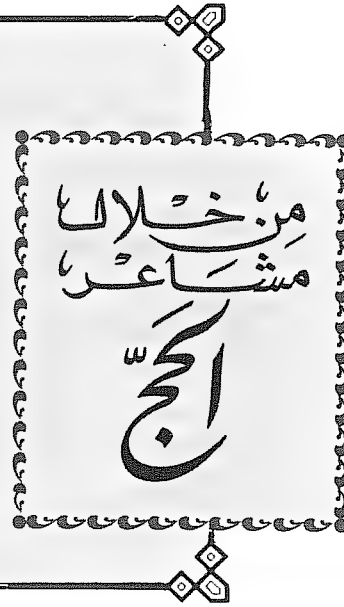 مِن خْلال
مشَاعْر
الحَجّ